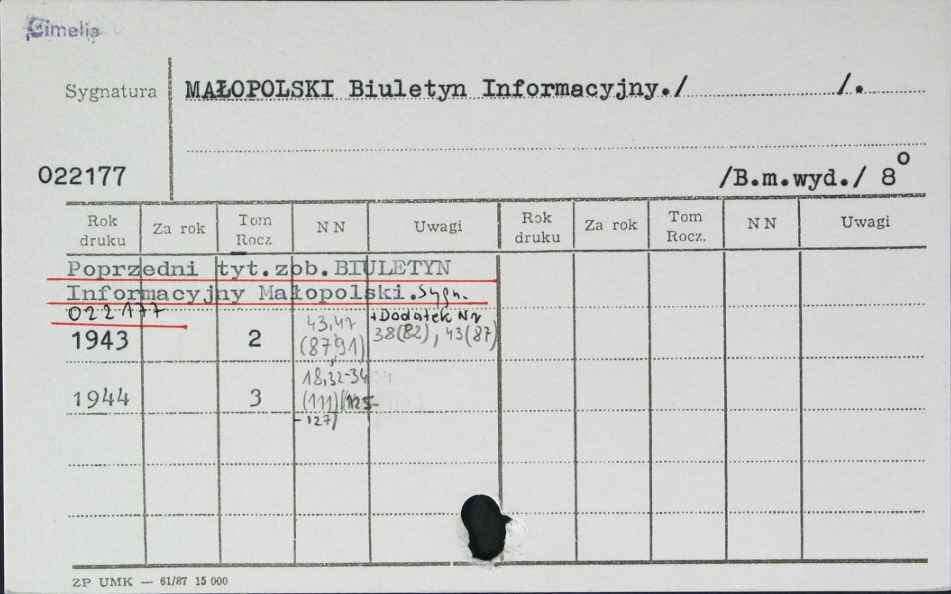 Cimelia
Sygnatura MAŁOPOLSKI Biuletyn Informacyjny./ /.
022177 /B.m.wyd./ 8°
Rok druku Za rok Tom Rocz. NN Uwagi Rok druku Za rok Tom Rocz. NN Uwagi
Poprzedni tyt.zob.BIULETYN
Informacyjny Małopolski.Sygn.
022177
1943 2 43,47 (87,91) +Dodatek Nr 38(82), 43(87)
1944 3 18,32-34 (111)(125--127)
ZP UMK — 61/87 15 000